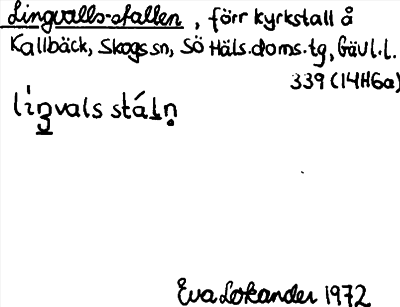 Lingvalls-stallen, förr kyrkstall å
Kallbäck, Skogs sn, Sö Häls. doms. tg, Gävl. l.
339 (14H6a)
liŋvals stálṇ
Eva Lokander 1972